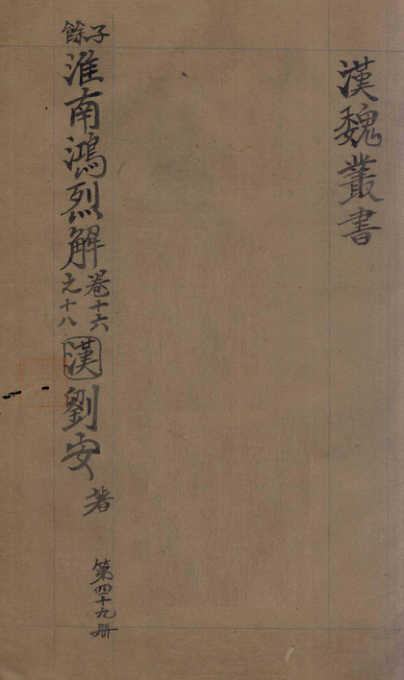 漢魏叢書
子餘
淮南鴻烈解
卷十六
之十八
漢
劉安著
第四十九册